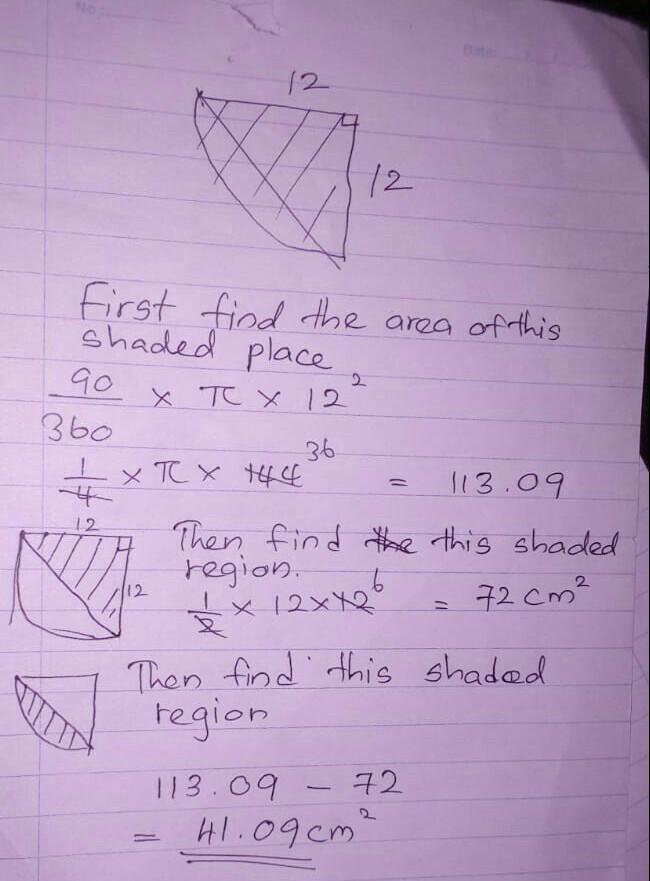 No
Date:
12
12
First find the area of this
shaded place
90/360 × π × 12²
1/4 × π × 144 36 = 113.09
12
12
Then find the this shaded
region.
1/2 × 12 × 12 6 = 72 cm²
Then find this shaded
region
113.09 - 72
= 41.09 cm²